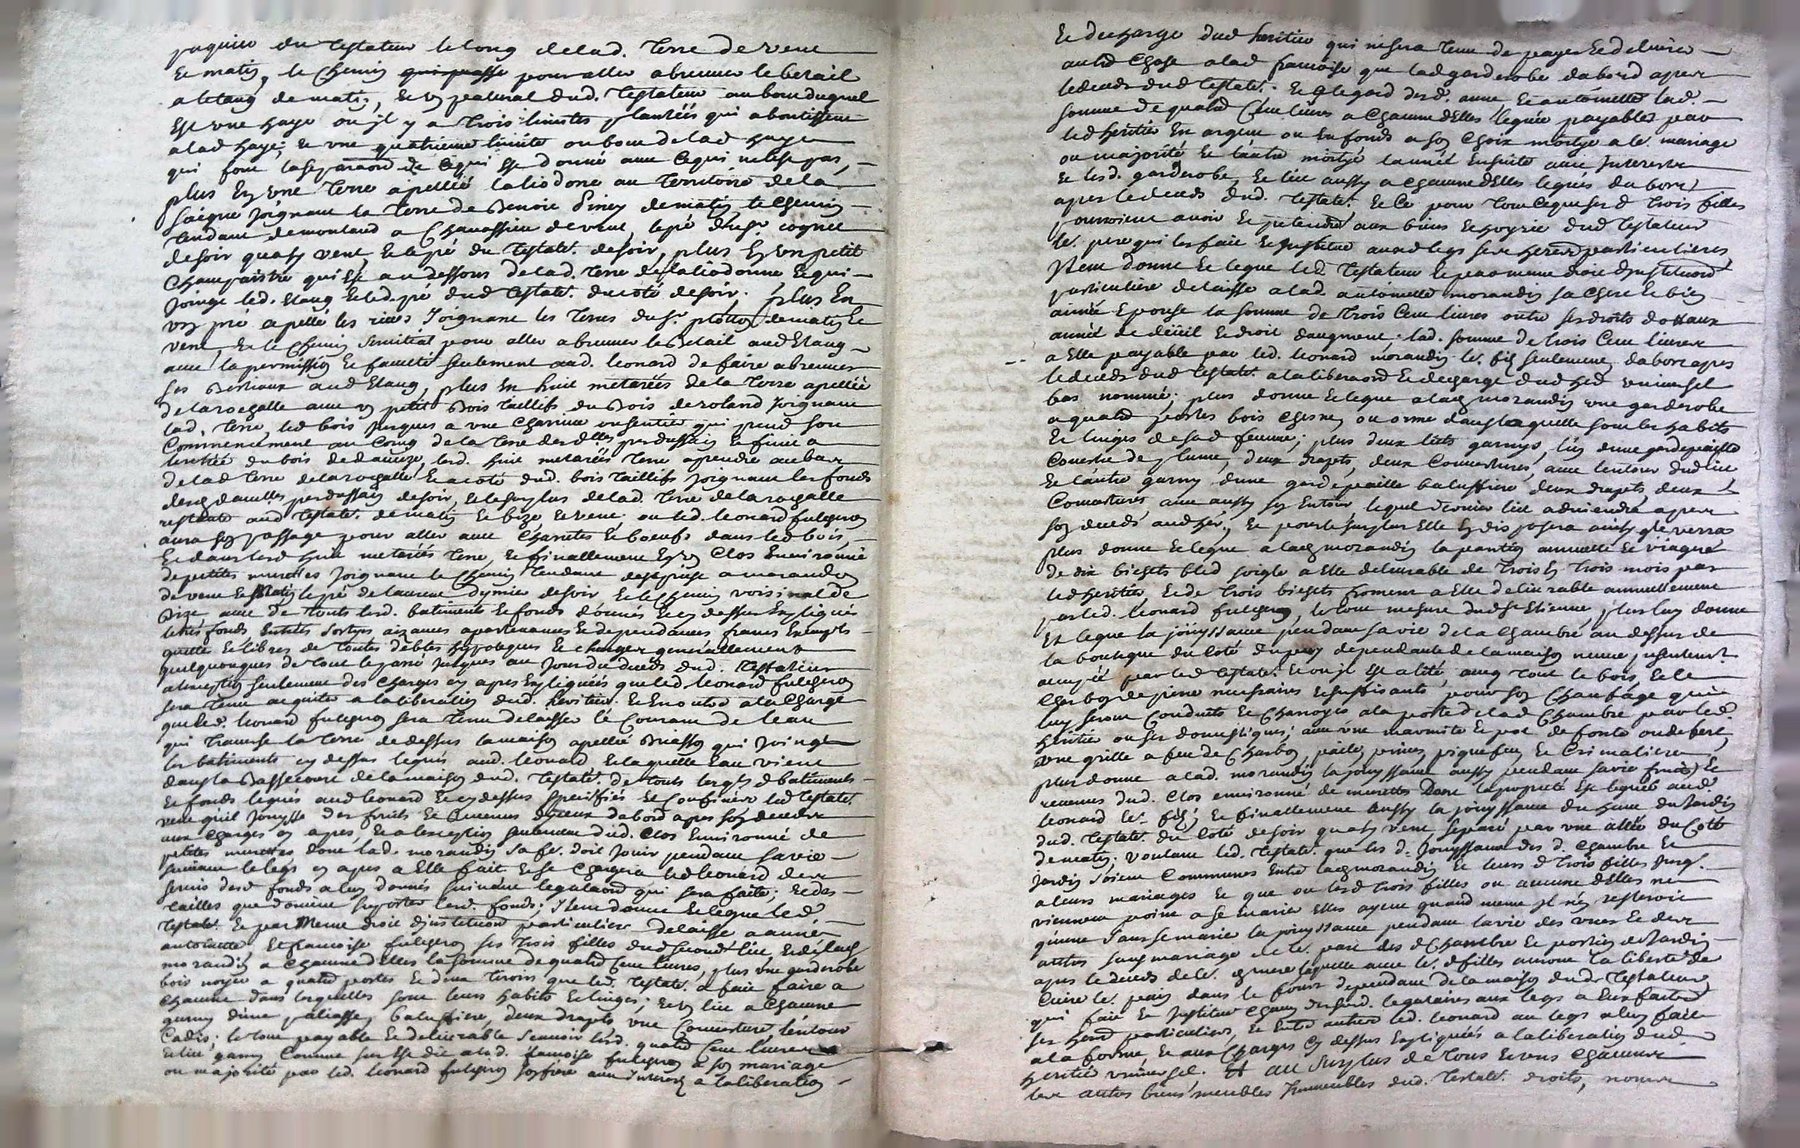 du Testateur le long de lad. Terre de vent
Et matin, le Chemin qui passe pour aller abreuver le betail
a letang de matin, Et un patural dud. Testateur au bout duquel
Est une haye ou jl y a trois limites plantées qui aboutissent
a lad haye, Et une quatrieme limite au bout de lad haye
qui font la separaon de Cequi Est donné avec Cequi ne lest pas,
plus En une Terre apellée la liodone au Territoire de la
joignant la Terre de Benoit de matin le Chemin
Tendant de montaud a Chavassieu de vent, le pré du sr. cognet
de soir quasy vent Et le pré du Testatr. de soir, plus En un petit
Champaistre qui Est au dessous de lad. Terre de la liodonne Et qui
joingt led. Etang Et led. pré dud Testatr. du coté de soir; plus En
un pré apellé les rives joignant les Terres du Sr. de matin Et
vent, Et le Chemin pour aller abreuver le Betail aud Etang
avec la permission Et faculté seulement aud. leonard de faire abreuver
ses Bestiaux aud Etang, plus En huit metarées de la Terre apellée
de la rogalle avec un petit Bois Taillifs du Bois de roland joignant
lad. Terre, led bois jusques a une qui prend son
Commencement au Coing de la Terre des dlles perdussain Et finit a
du bois de led. huit metarées Terre a prendre au bas
de lad Terre de la rogalle Et a coté dud. bois Taillifs joignant les fonds
desd. damelles perdussain de soir, Et le surplus de lad. Terre de la rogalle
restante aud Testatr. de matin Et bize Et vent. ou led. leonard fulchiron
aura son passage pour aller avec Charettes Et boeufs dans led bois,
Et dans lesd huit metarées Terre, Et finallement En un Clos Environné
de petites murettes joignant le Chemin Tendant de a
de vent Et matin le pré de laurent dymier de soir Et le Chemin voisinal de
Bize avec de touts lesd. batiments Et fonds donnés Et cy dessus Expliqués
leurs fonds Entrées sorties aizances apartenances Et dependances francs Exempts
quittes Et libres de toutes debtes hypoteques Et charges generallement
quelquonques de tout le passé jusques au jour du deceds dud. Testateur
a lexception seulement des Charges cy apres Expliquées que led. leonard fulchiron
sera tenu acquitter a la liberation dud. heritier. Et En outre a la Charge
que led. leonard fulchiron sera Tenu de laisser le Courant de leau
qui Traverse la Terre de dessus la maison apellée qui joingt
les batiments cy dessus legués aud. leonard Et laquelle Eau vient
dans la Bassecourt de la maison dud. Testatr. de touts lesquels d batiments
Et fonds legués aud leonard Et cy dessus specifiés Et Confinés led Testatr.
veut quil jouysse des fruits Et Revenus d'iceux dabord apres son deceds
aux Charges cy apres Et a lexception seulement dud. Clos Environné de
petites murettes dont lad. morandin sa fe. doit jouir pendant sa vie
suivant le legs cy apres a Elle fait Et se Chargera led leonard des
servis desd fonds a luy donnés suivant legalaond qui sera faite. Et des
tailles que devront suporter lesd. fonds; Item donne Et legue led
Testatr. Et par Meme droit d'jnstitution particuliere delaisse a anne
antoinette Et francoise fulchiron ses trois filles dud second lict, Et de lad
morandin a Chacune d'Elles la somme de quatre Cent livres, plus une garderobe
bois noyer a quatre portes Et deux Tiroirs que led. Testatr. a fait faire a
Chacune dans lesquelles sont leurs habits Et linges; Et un lict a Chacune
garny d'une paliasse, balustiere, deux draps une Couverture lentour
Cadis; le tout payable Et delivrable scavoir lesd. quatre Cent livres
Et lict garny Comme sus Est dit a lad. francoise fulchiron a son mariage
ou majorité par led. leonard fulchiron son frere avec Interest a la liberation
Et decharge dud heritier qui ne sera tenu de payer Et delivrer
autre Chose a lad francoise que lad garderobe dabord apres
le deceds dud Testatr. Et a legard desd. anne, Et antoinette lad.
somme de quatre Cent livres a Chacune d'Elles leguée payable par
led heritier En argent ou En fonds a son Choix moitye a le. mariage
ou majorité Et l'autre moitye lannée Ensuite avec Interest
Et lesd. garderobe, Et lict aussy a Chacune d'Elles legués dabord
apres le deceds dud. Testatr. Et Ce pour tout Ce que sesd Trois filles
pourroient avoir Et pretendre aux biens Et hoyrie dud Testateur
le. pere qui les fait Et Institue auxd legs ses herers particulieres
Item donne Et legue led. Testateur Et par meme droit d'jnstituaond
particuliere delaisse a lad. antoinette morandin sa chere Et bien
aimée Epouse la somme de Trois Cent livres outre ses droits dottaux
année de deüil Et droit daugment. lad. somme de trois Cent livres
a Elle payable par led. leonard morandin le. fils seulement dabord apres
le deceds dud Testatr. a la liberaond Et decharge dud hed universel
bas nommé; plus donne Et legue a lad morandin une garderobe
a quatre portes bois Chesne, ou orme dans laquelle sont les habits
Et linges de sad femme; plus deux licts garnys, l'un d'une gardepaille
Couestre de plume, deux draps, deux Couvertures, avec lentour dud lict
Et l'autre garny d'une gardepaille balustiere deux draps deux
Couvertures avec aussy son Entour lequel dernier lict adviendra apres
son deceds aud her., Et pour le surplus Elle En disposera ainsy qle verra
plus donne Et legue a lad morandin la pention annuelle Et viagere
de dix bichets bled soigle a Elle delivrable de Trois En Trois mois par
led heritier, Et de trois bichets froment a Elle delivrable annuellement
par led. leonard fulchiron, le tout mesure dud St Etienne, plus luy donne
Et legue la jouyssance pendant sa vie de la Chambre au dessus de
la boutique du coté du dependante de la maison neuve presentemt
occupée par led Testatr. Et ou jl Est alité, avec tout le bois, Et le
Charbon de pierre necessaires Et suffisants pour son Chaufage qui
luy seront Conduits Et Charroyes a la porte de lad Chambre par led.
heritier ou ses domestiques; avec une marmitte Et pot de fonte ou de fert,
une grille a feu de Charbon, poele, pinces, piquefeu, Et Crimaliere
plus donne a lad. morandin la jouyssance aussy pendant sa vie fruits Et
revenus dud. Clos environné de murettes Dont la propreté Est leguée aud.
leonard le. fils; Et finallement aussy la jouyssance du haut du Jardin
dud. Testatr. du coté de soir quasy vent separé par une allée du Coté
de matin; voulant led. Testatr. que les d. Jouyssances des d. Chambre Et
jardin soient Communes Entre lad morandin Et leurs d Trois filles jusq.
a leurs mariages Et que ou lesd trois filles ou aucune d'Elles ne
viennent point a se marier Elles ayent quand meme jl n'en resteroit
qu'une sans se marier la jouyssance pendant la vie des unes Et des
autres sans mariage de le. part des d Chambre Et portion de Jardin
apres le deceds de le. d mere laquelle avec le. d filles auront la liberté de
Cuire le. pain dans le four dependant de la maison dud. Testateur
qui fait Et Institue Chacun desd. legataires aux legs a Eux faits
ses herd particuliers, Et Entre autres led. leonard au legs a luy fait
a la forme, Et aux Charges Cy dessus Expliquées a la liberation dud.
heritier universel. Et au surplus de tous Et uns Chacuns
ses autres biens meubles Immeubles dud. Testatr. droits, noms